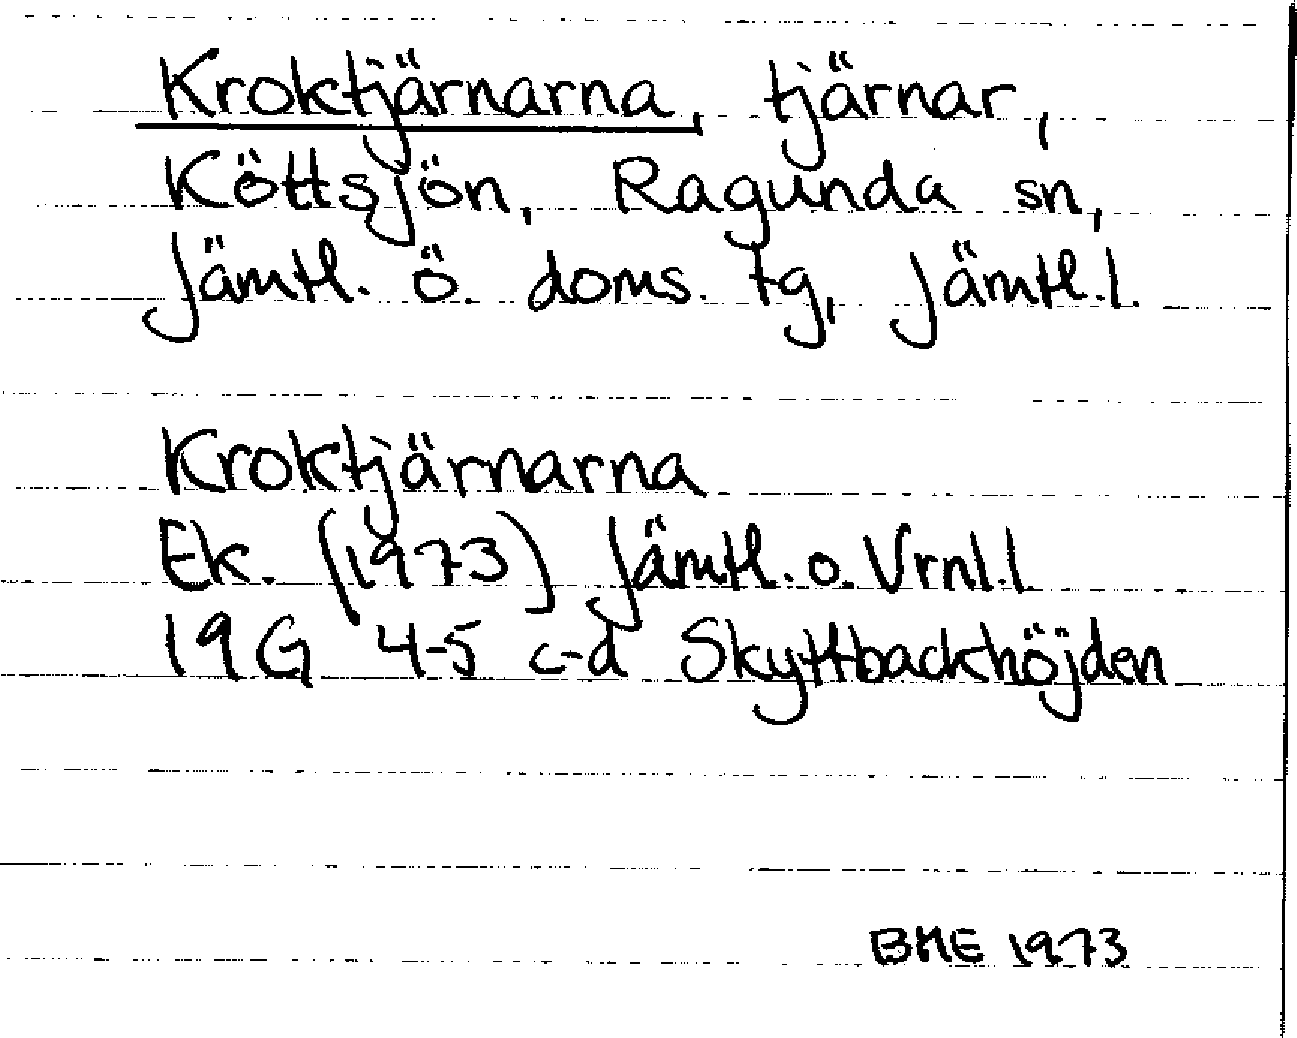 Kroktjärnarna, tjärnar,
Köttsjön, Ragunda sn,
Jämtl. ö. doms. tg, Jämtl. l.
Kroktjärnarna
Ek. (1973) Jämtl. o. Vrnl. l
19G 4-5 c-d Skyttbackhöjden
BME 1973